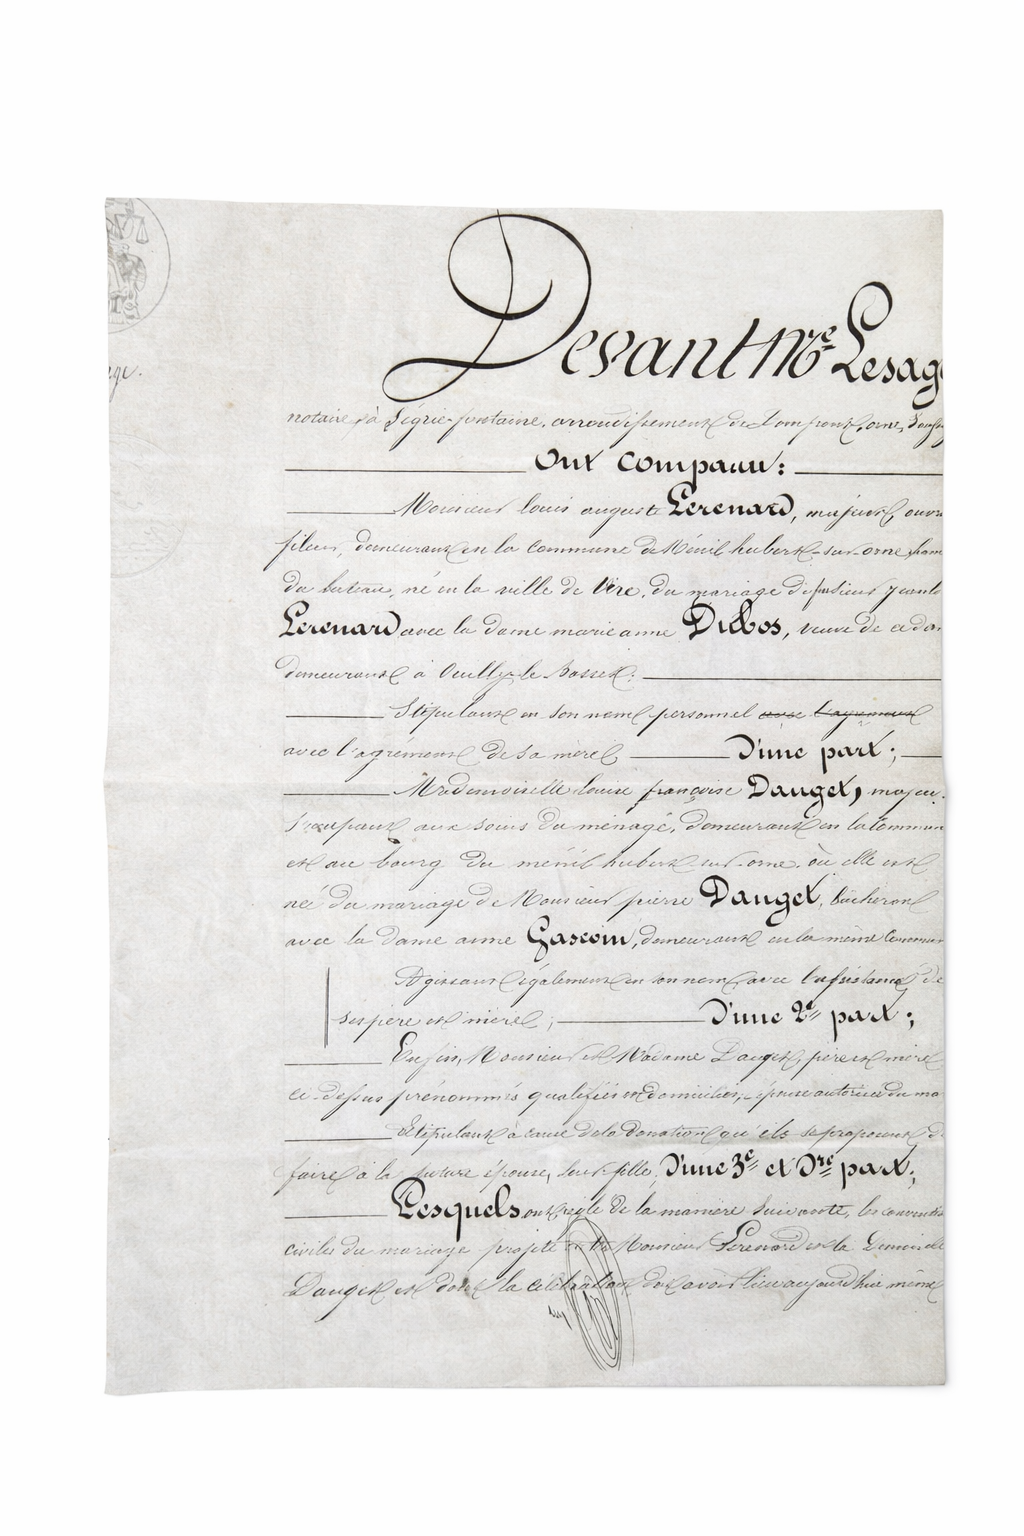 Devant Me Lesag
ge.
notaire à Ségrie-fontaine, arrondissement de Domfront, orne,
Ont Comparu:
Monsieur louis auguste Lerenard, majeur, ouvr
fileur, demeurant en la commune de Ménil hubert-sur-orne, ham
du bateau, né en la ville de Vire, du mariage de
Lerenard avec la dame marie anne Dubos, veuve de ce der
demeurant à Ouilly-le Basset;
Stipulant en son nom personnel avec l'agrément
avec l'agrément de sa mère D'une part;
Mademoiselle louise françoise Dauget, majeu
s'occupant aux soins du ménage, demeurant en la Commun
et au bourg du ménil hubert-sur-orne, où elle est
née du mariage de Monsieur pierre Dauget, bûcheron
avec la dame anne Gascoin, demeurant en la même Commun
Agissant également en son nom, avec l'assistance de
ses père et mère; D'une 2e part;
Enfin, Monsieur et Madame Dauget, père et mère
ci-dessus prénommés qualifiés et domiciliés, épouse autorisée du ma
Stipulant à cause de la donation qu'ils se proposent d
faire à la future épouse, leur fille, D'une 3e et Dre part;
Lesquels ont réglé de la manière suivante, les conventio
civiles du mariage projeté entre Monsieur Lerenard et la Demoiselle
Dauget et dont la célébration doit avoir lieu aujourd'hui même